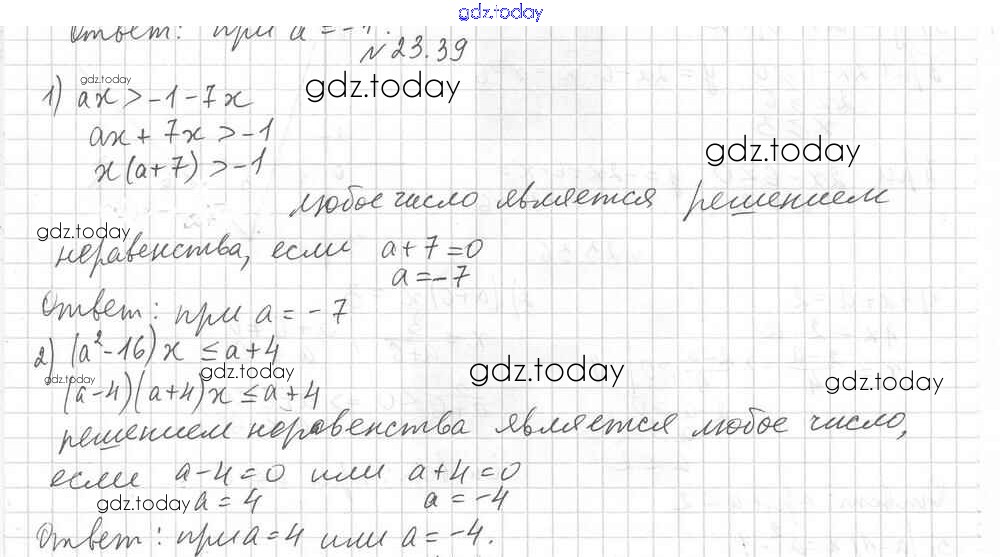 gdz.today
Ответ: при a = -1.
№ 23.39
gdz.today
1) ax > -1 - 7x
gdz.today
ax + 7x > -1
gdz.today
x(a+7) > -1
любое число является решением
gdz.today
неравенства, если a + 7 = 0
a = -7
Ответ: при a = -7
2) (a² - 16)x ≤ a + 4
gdz.today
gdz.today
gdz.today
gdz.today
(a-4)(a+4)x ≤ a + 4
решением неравенства является любое число,
если a - 4 = 0 или a + 4 = 0
gdz.today
a = 4 a = -4
Ответ: при a = 4 или a = -4.